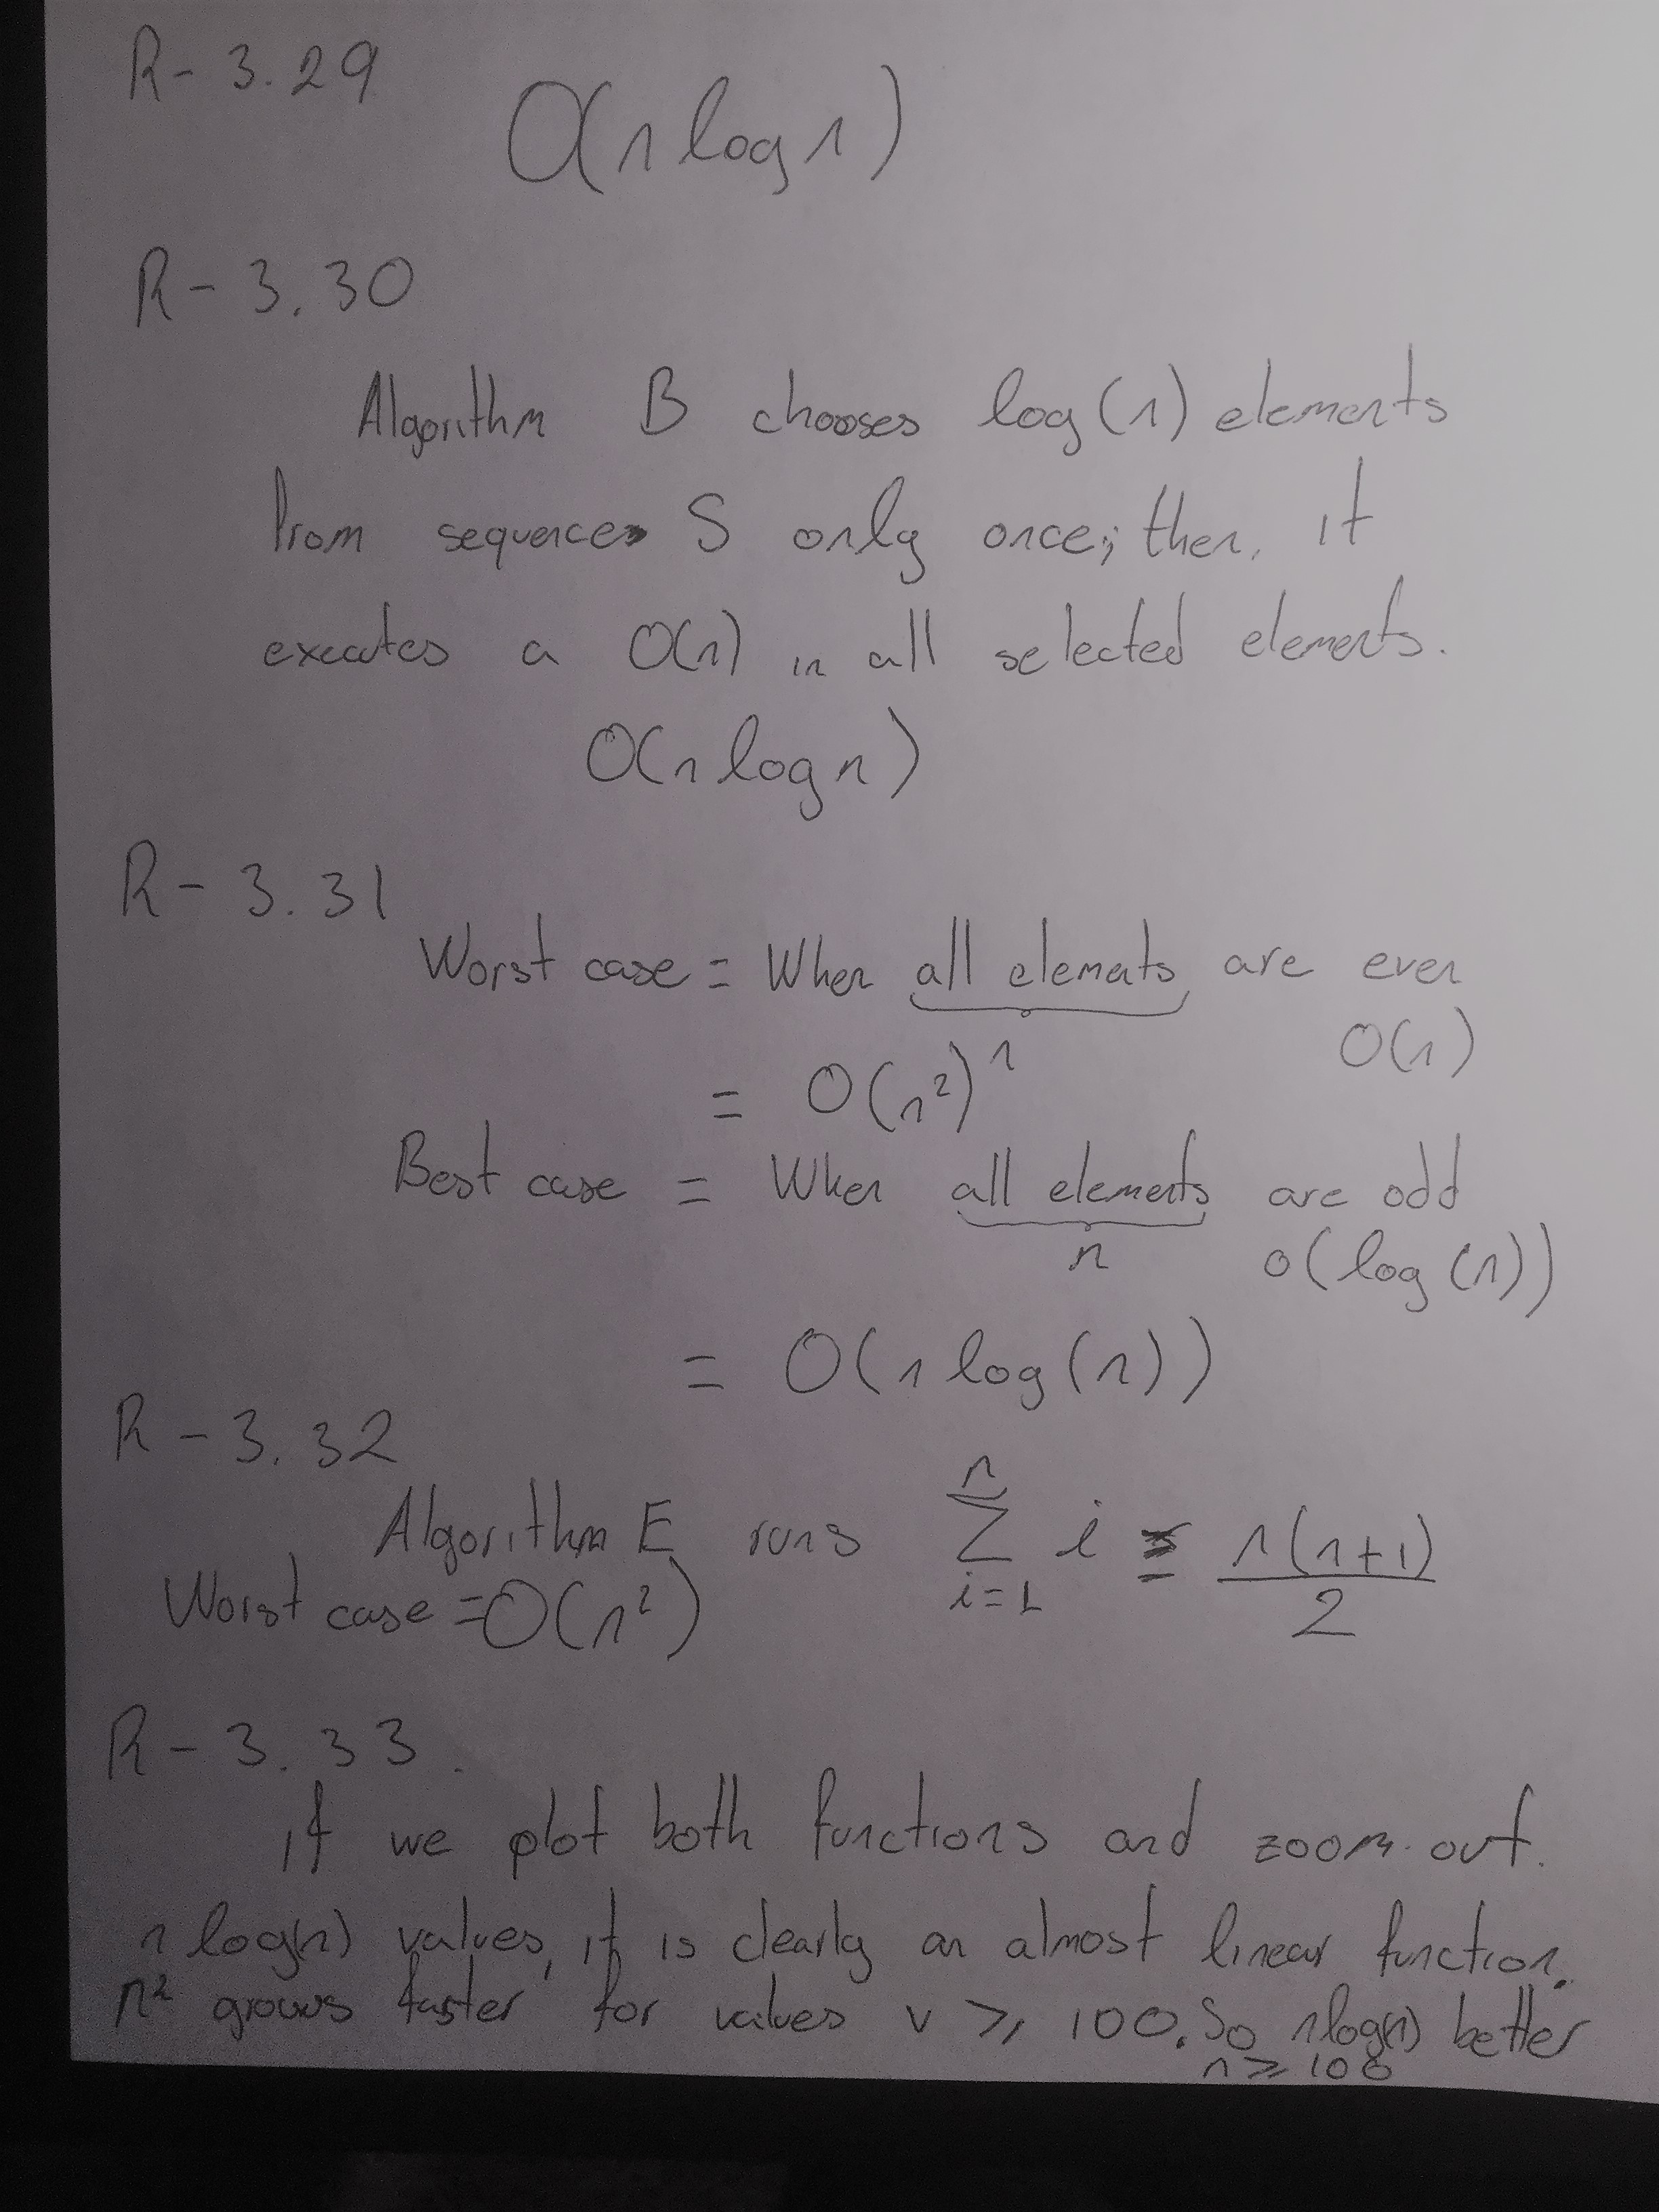 R-3.29
O(n log n)
R-3.30
Algorithm B chooses log(n) elements
from sequence S only once; then, it
executes a O(n) in all selected elements.
O(n log n)
R-3.31
Worst case = When all elements are even
n O(n)
= O(n²)
Best case = When all elements are odd
n O(log(n))
= O(n log(n))
R-3.32
Algorithm E runs ∑ i=1 n i = n(n+1)/2
Worst case = O(n²)
R-3.33.
If we plot both functions and zoom out.
n log(n) values, it is clearly an almost linear function.
n² grows faster for values v ≥ 100. So n log(n) better
n ≥ 100